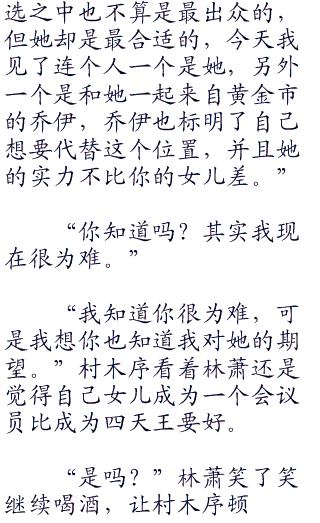 选之中也不算是最出众的，
但她却是最合适的，今天我
见了连个人一个是她，另外
一个是和她一起来自黄金市
的乔伊，乔伊也标明了自己
想要代替这个位置，并且她
的实力不比你的女儿差。”
“你知道吗？其实我现
在很为难。”
“我知道你很为难，可
是我想你也知道我对她的期
望。”村木序看着林萧还是
觉得自己女儿成为一个会议
员比成为四天王要好。
“是吗？”林萧笑了笑
继续喝酒，让村木序顿